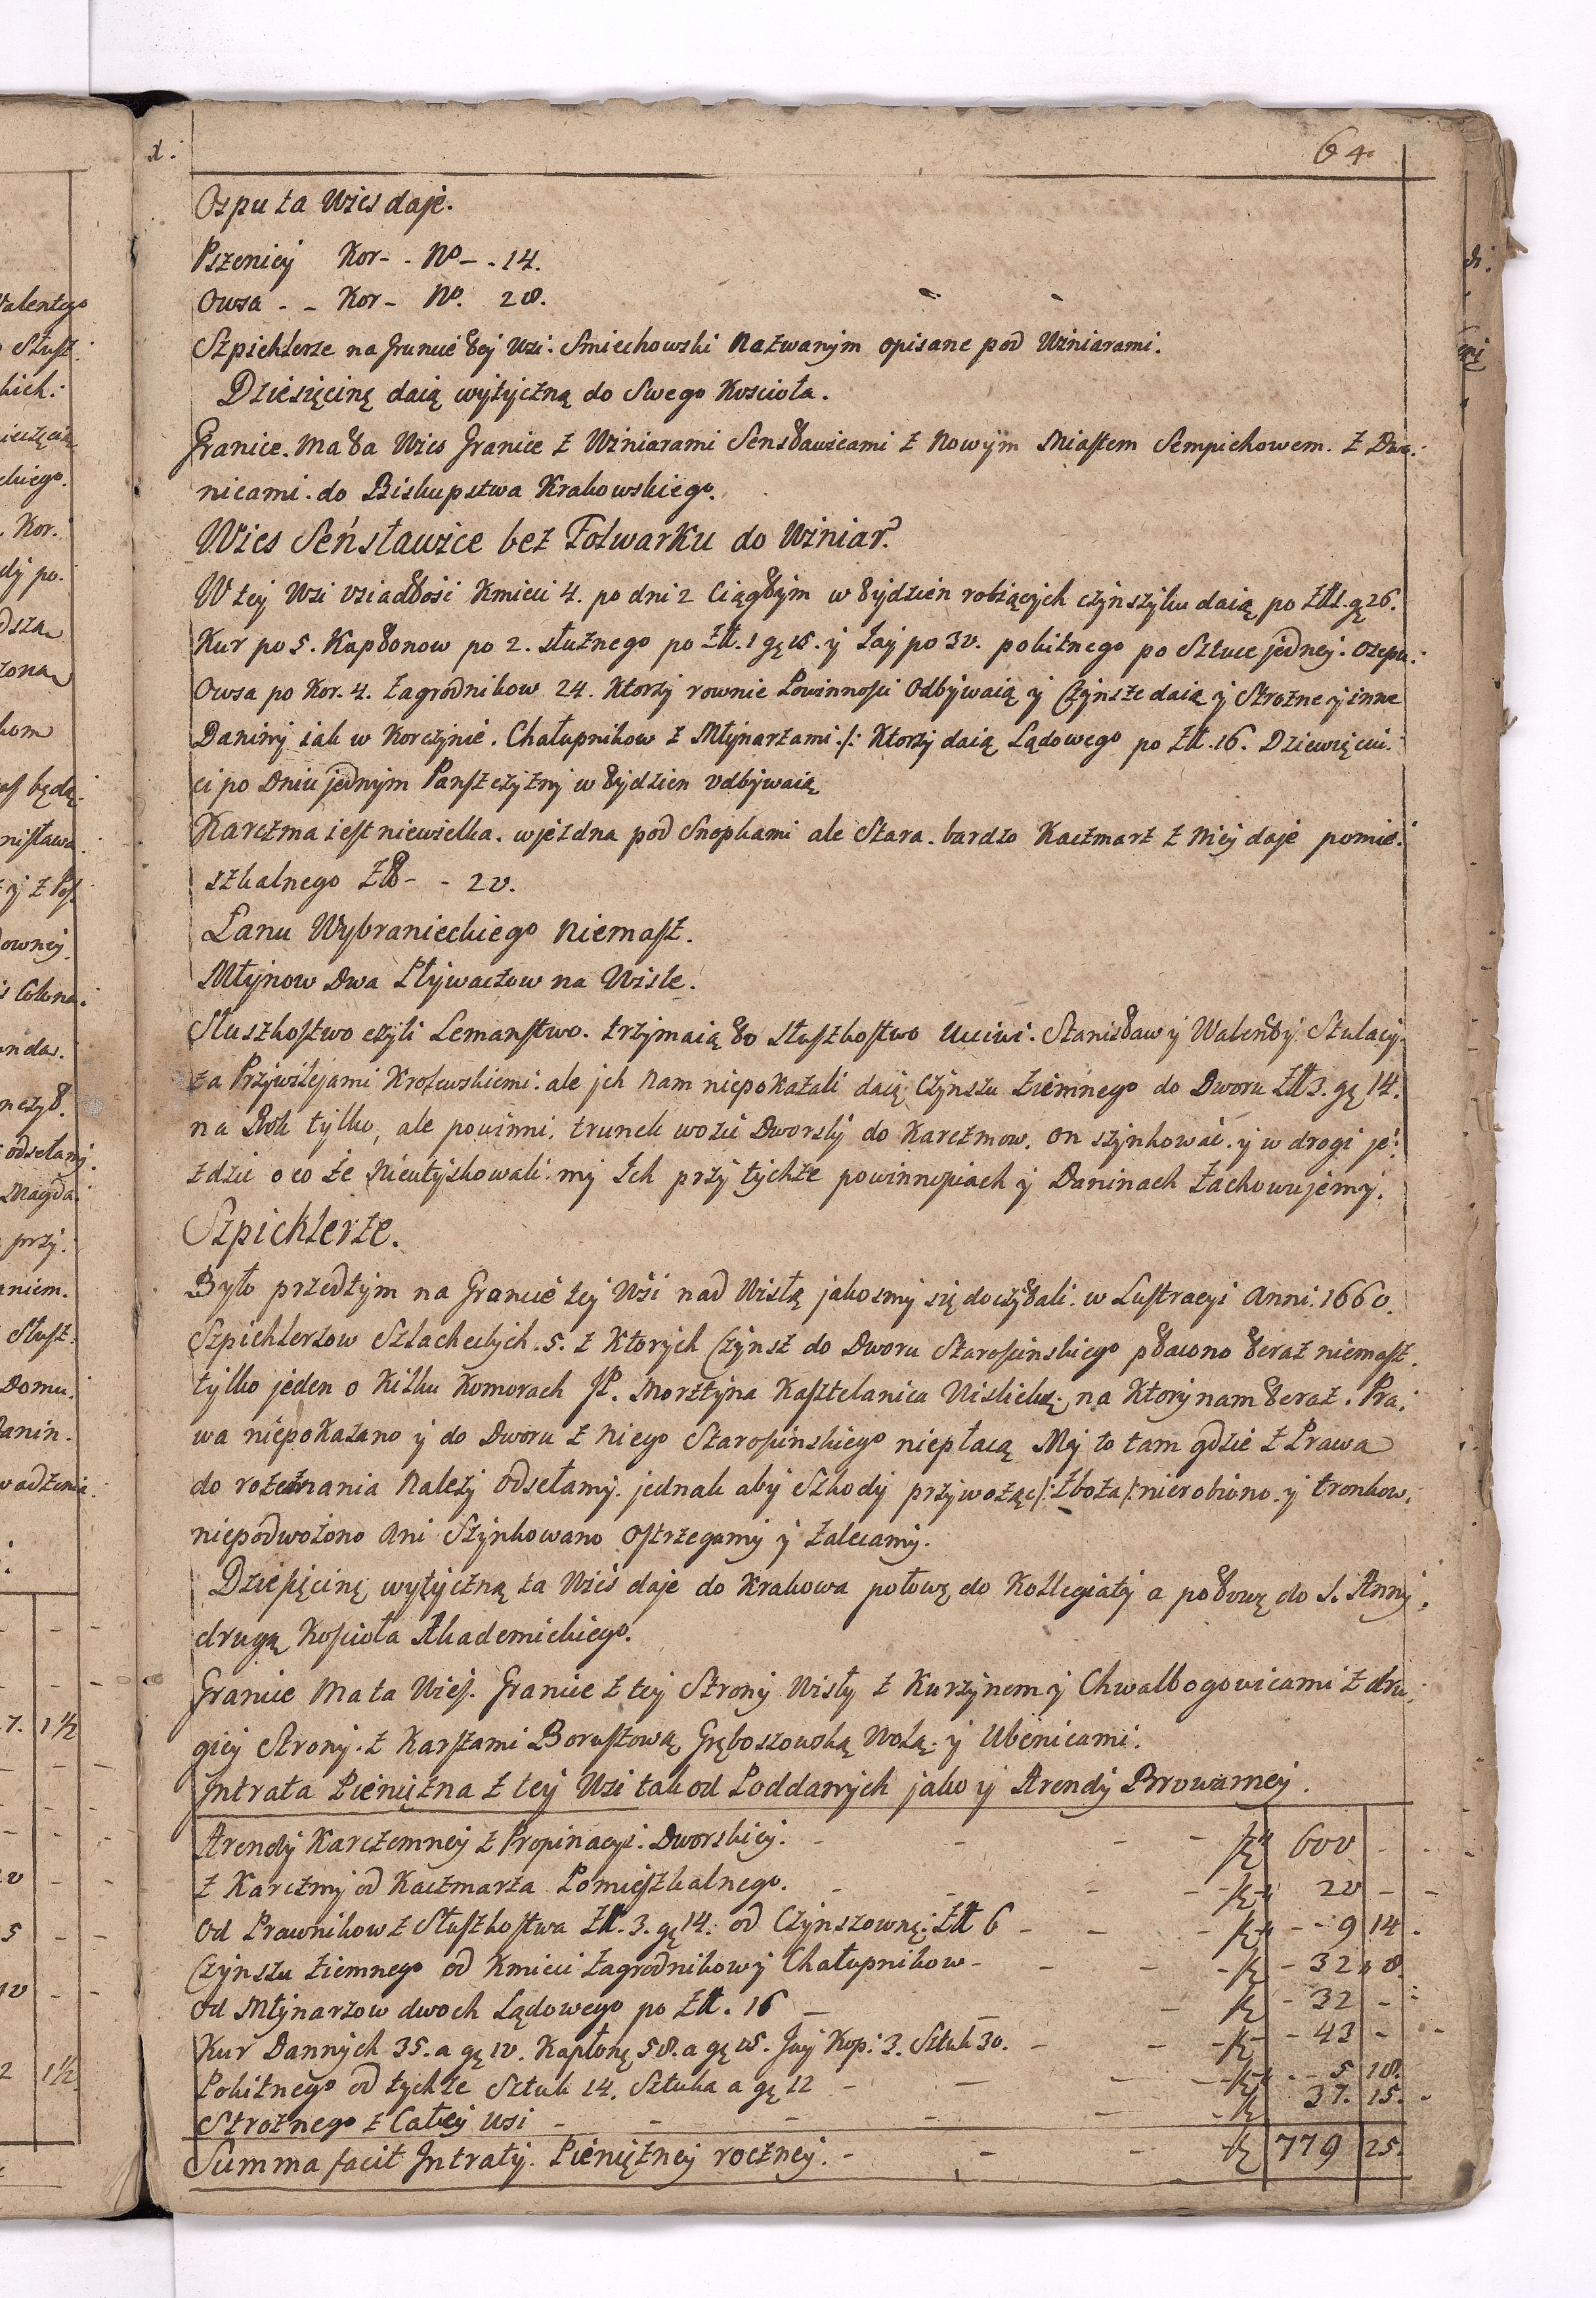 64
Ospu ta Wies daje.
Pszenicy Kor- - No- - 14.
Owsa - - Kor- No. 28.
Szpichlerze na Gruncie tey Wsi: Smiechowski Nazwanym opisane pod Winiarami.
Dziesięcinę daią wytyczną do Swego Koscioła.
Granice. Ma ta Wies Granice z Winiarami Sensławicami z Nowym Miastem Sempichowem. z Dwa-
nicami. do Biskupstwa Krakowskiego.
Wies Seńsławice bez Folwarku do Winiar.
W tey Wsi vsiadłosi Kmieci 4. po dni 2 Ciągłym w tydzien robiących czynszyku daią po Złł. gę 26.
Kur po 5. Kapłonow po 2. stużnego po Złł. 1 gę 15. y Jay po 30. pobitnego po Sztuce jedney. Ozepu:
Owsa po Kor. 4. Zagrodnikow 24. Ktorzy rownie Powinnosci Odbywaią y Czynsze daią y Strozne y inne
Daniny iak w Korczynie. Chałupnikow z Młynarzami /: Ktorzy daią Lądowego po Złł. 16. Dziewięciu.
ci po Dniu jednym Panszczyzny w tydzien odbywaią
Karczma iest niewielka. wjezdna pod Snopkami ale Stara. bardzo Kaczmarz z Niey daje pomie:
szkalnego Zł - - 20.
Łanu Wybranieckiego Niemasz.
Młynow Dwa Pływaczow na Wisle.
Służkostwo czyli Lemanstwo. trzymaią to Służkostwo Uciwi. Stanisław y Walenty Stulacy.
za Przywilejami Krolewskiemi. ale jch Nam niepokazali daią Czynszu Ziemnego do Dworu Złł 3. gę 14.
na Rok tylko, ale powinni. trunek wozic Dworsky do Karczmow. on szynkować. y w drogi je:
zdzic o co że Nieutyskowali. my Ich przy tychże powinnosciach y Daninach Zachowujemy.
Szpichlerze.
Było przedtym na Gruncie tey Wsi nad Wisłą jakosmy się doczytali. w Lustracyi Anni. 1660.
Szpichlerzow Szlacheckych. 5. z Ktorych Czynsz do Dworu Starostinskiego płacono teraz niemasz.
tylko jeden o Kilku Komorach JP. Morztyna Kasztelanica Wislickę. na Ktory nam teraz. Pra:
wa niepokazano y do Dworu z Niego Starostinskiego niepłacą My to tam gdzie z Prawa
do rozeznania Nalezy Odsełamy. jednak aby Szkody przywożąc /: Zboża /: nierobiono. y tronkow.
niepodwożono Ani Szynkowano ostrzegamy y Zalecamy.
Dziesięcinę wytyczną ta Wieś daje do Krakowa połowę do Kollegiaty a połowę do S. Anny.
drugą Koscioła Akademickiego.
Granice Ma ta Wies. Granice z tey Strony Wisły z Kurzynem y Chwalbogowicami z dru:
giey Strony. z Karszami Boruszową Gręboszowską Wolą. y Ubenicami.
Intrata Pieniężna z tey Wsi tak od Poddanych jako y Arendy Browarney.
Arendy Karczemney z Propinacyi. Dworskiey. - - - - 600 -
z Karczmy od Kaczmarza Pomieszkalnego. - - - - 20 -
Od Prawnikow z Służkostwa Złł. 3. gę 14. od Czynszownę. Złł 6 - - - 9 14.
Czynszu Ziemnego od Kmieci Zagrodnikow y Chałupnikow - - - - 32 18.
Od Młynarzow dwoch Lądowego po Złł. 16 - - - 32 -
Kur Dannych 35. a gę 10. Kapłonę 58. a gę 15. Jay Kop. 3. Sztuk 30. - - - 43 -
Pobitnego od tychże Sztuk 14. Sztuka a gę 12 - - - 5 18.
Strożnego z Całey Wsi - - - - - - 37. 15.
Summa facit Intraty. Pieniężney roczney. - - - 779 25.